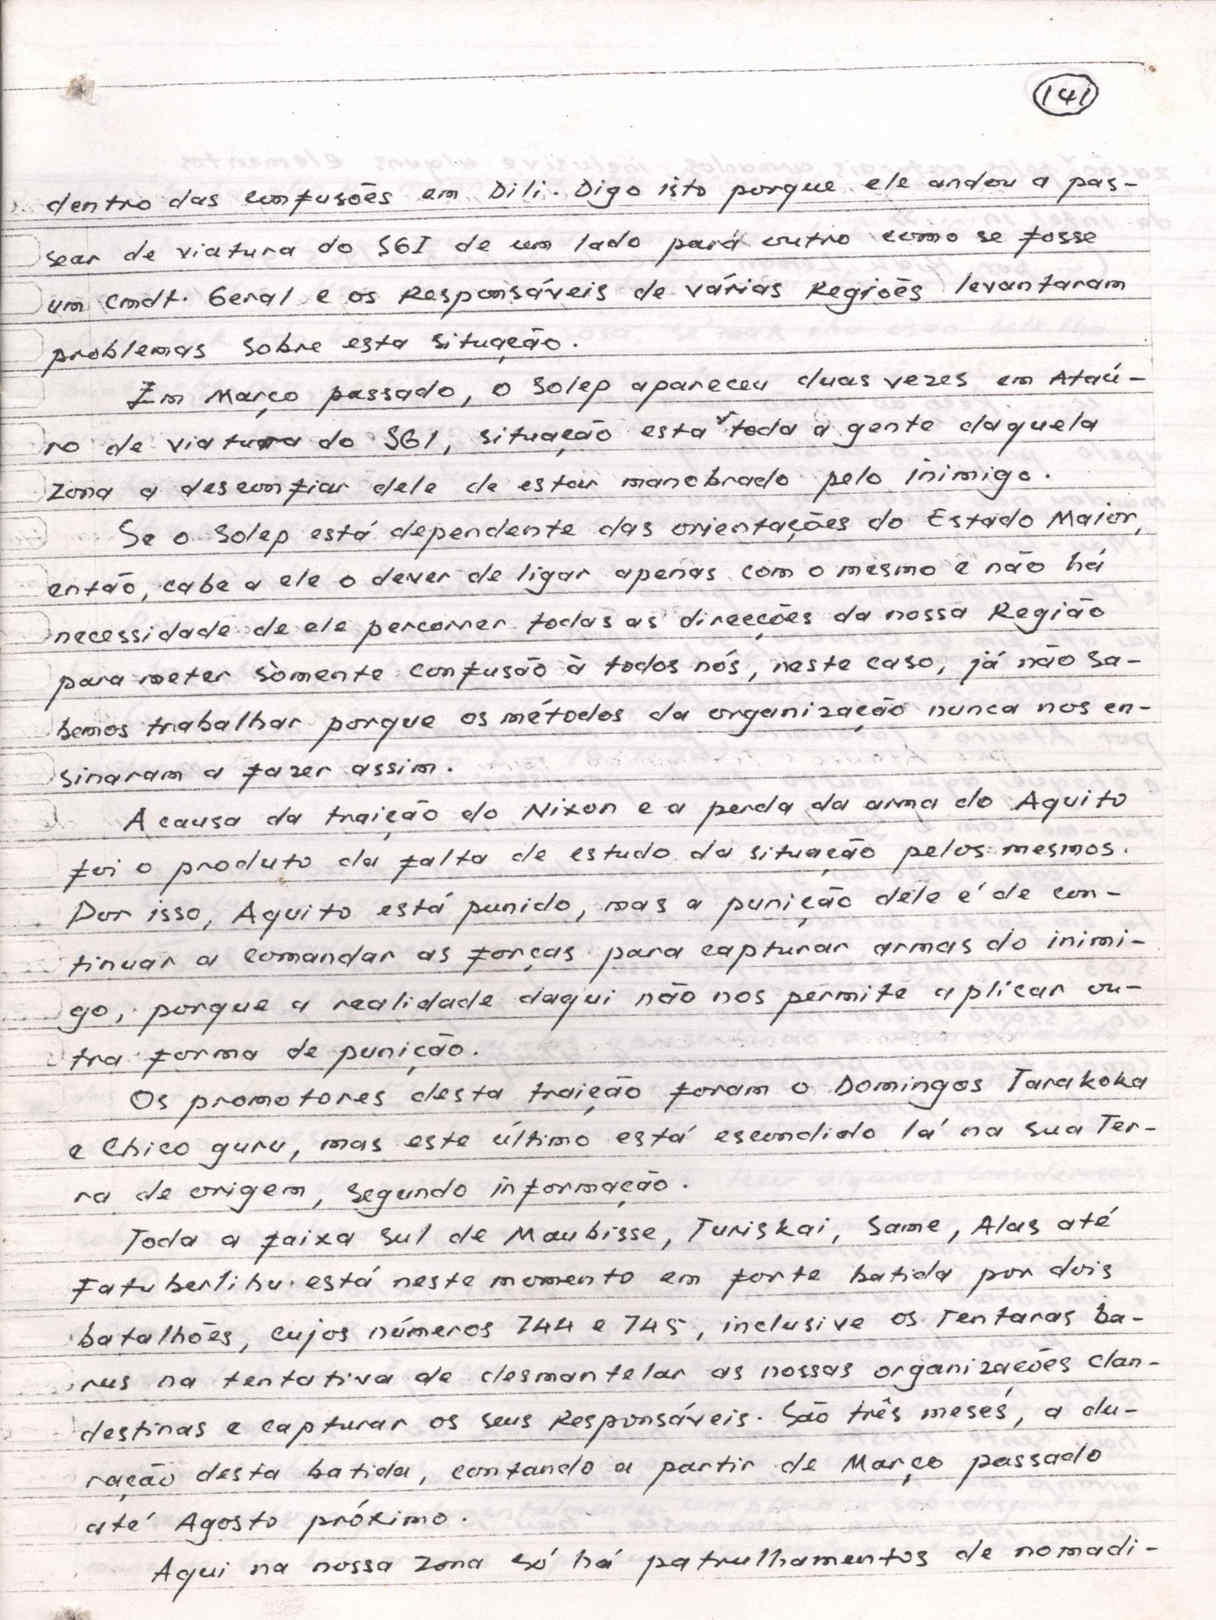 141
dentro das confusões em Dili. Digo isto porque ele andou a pas-
sear de viatura do SGI de um lado para outro como se fosse
um Cmdt. Geral e os Responsáveis de várias Regiões levantaram
problemas sobre esta situação.
Em Março passado, o Solep apareceu duas vezes em Ataú-
ro de viatura do SGI, situação esta toda a gente daquela
zona a desconfiar dele de estar manobrado pelo inimigo.
Se o Solep está dependente das orientações do Estado Maior,
então, cabe a ele o dever de ligar apenas com o mesmo e não há
necessidade de ele percorrer todas as direcções da nossa Região
para meter sòmente confusão à todos nós, neste caso, já não sa-
bemos trabalhar porque os métodos da organização nunca nos en-
sinaram a fazer assim.
A causa da traição do Nixon e a perda da arma do Aquito
foi o produto da falta de estudo da situação pelos mesmos.
Por isso, Aquito está punido, mas a punição dele é de con-
tinuar a comandar as forças para capturar armas do inimi-
go, porque a realidade daqui não nos permite aplicar ou-
tra forma de punição.
Os promotores desta traição foram o Domingos Tarakoka
e Chico guru, mas este último está escondido lá na sua Ter-
ra de origem, segundo informação.
Toda a faixa sul de Maubisse, Turiskai, Same, Alas até
Fatuberlihu está neste momento em forte batida por dois
batalhões, cujos números 744 e 745, inclusive os Tentaras ba-
rus na tentativa de desmantelar as nossas organizações clan-
destinas e capturar os seus Responsáveis. São três meses, a du-
ração desta batida, contando a partir de Março passado
até Agosto próximo.
Aqui na nossa zona só há patrulhamentos de nomadi-